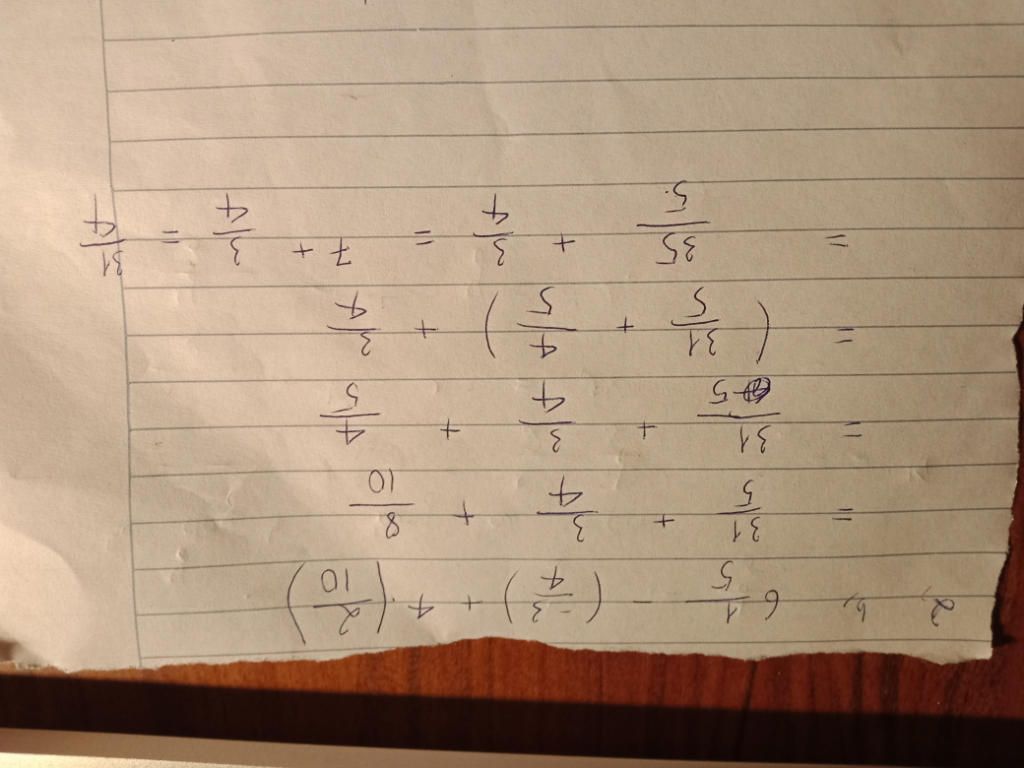 2, b, 6 1/5 - (-3/4) + 4.(2/10)
= 31/5 + 3/4 + 8/10
= 31/5 + 3/4 + 4/5
= (31/5 + 4/5) + 3/4
= 35/5 + 3/4 = 7 + 3/4 = 31/4